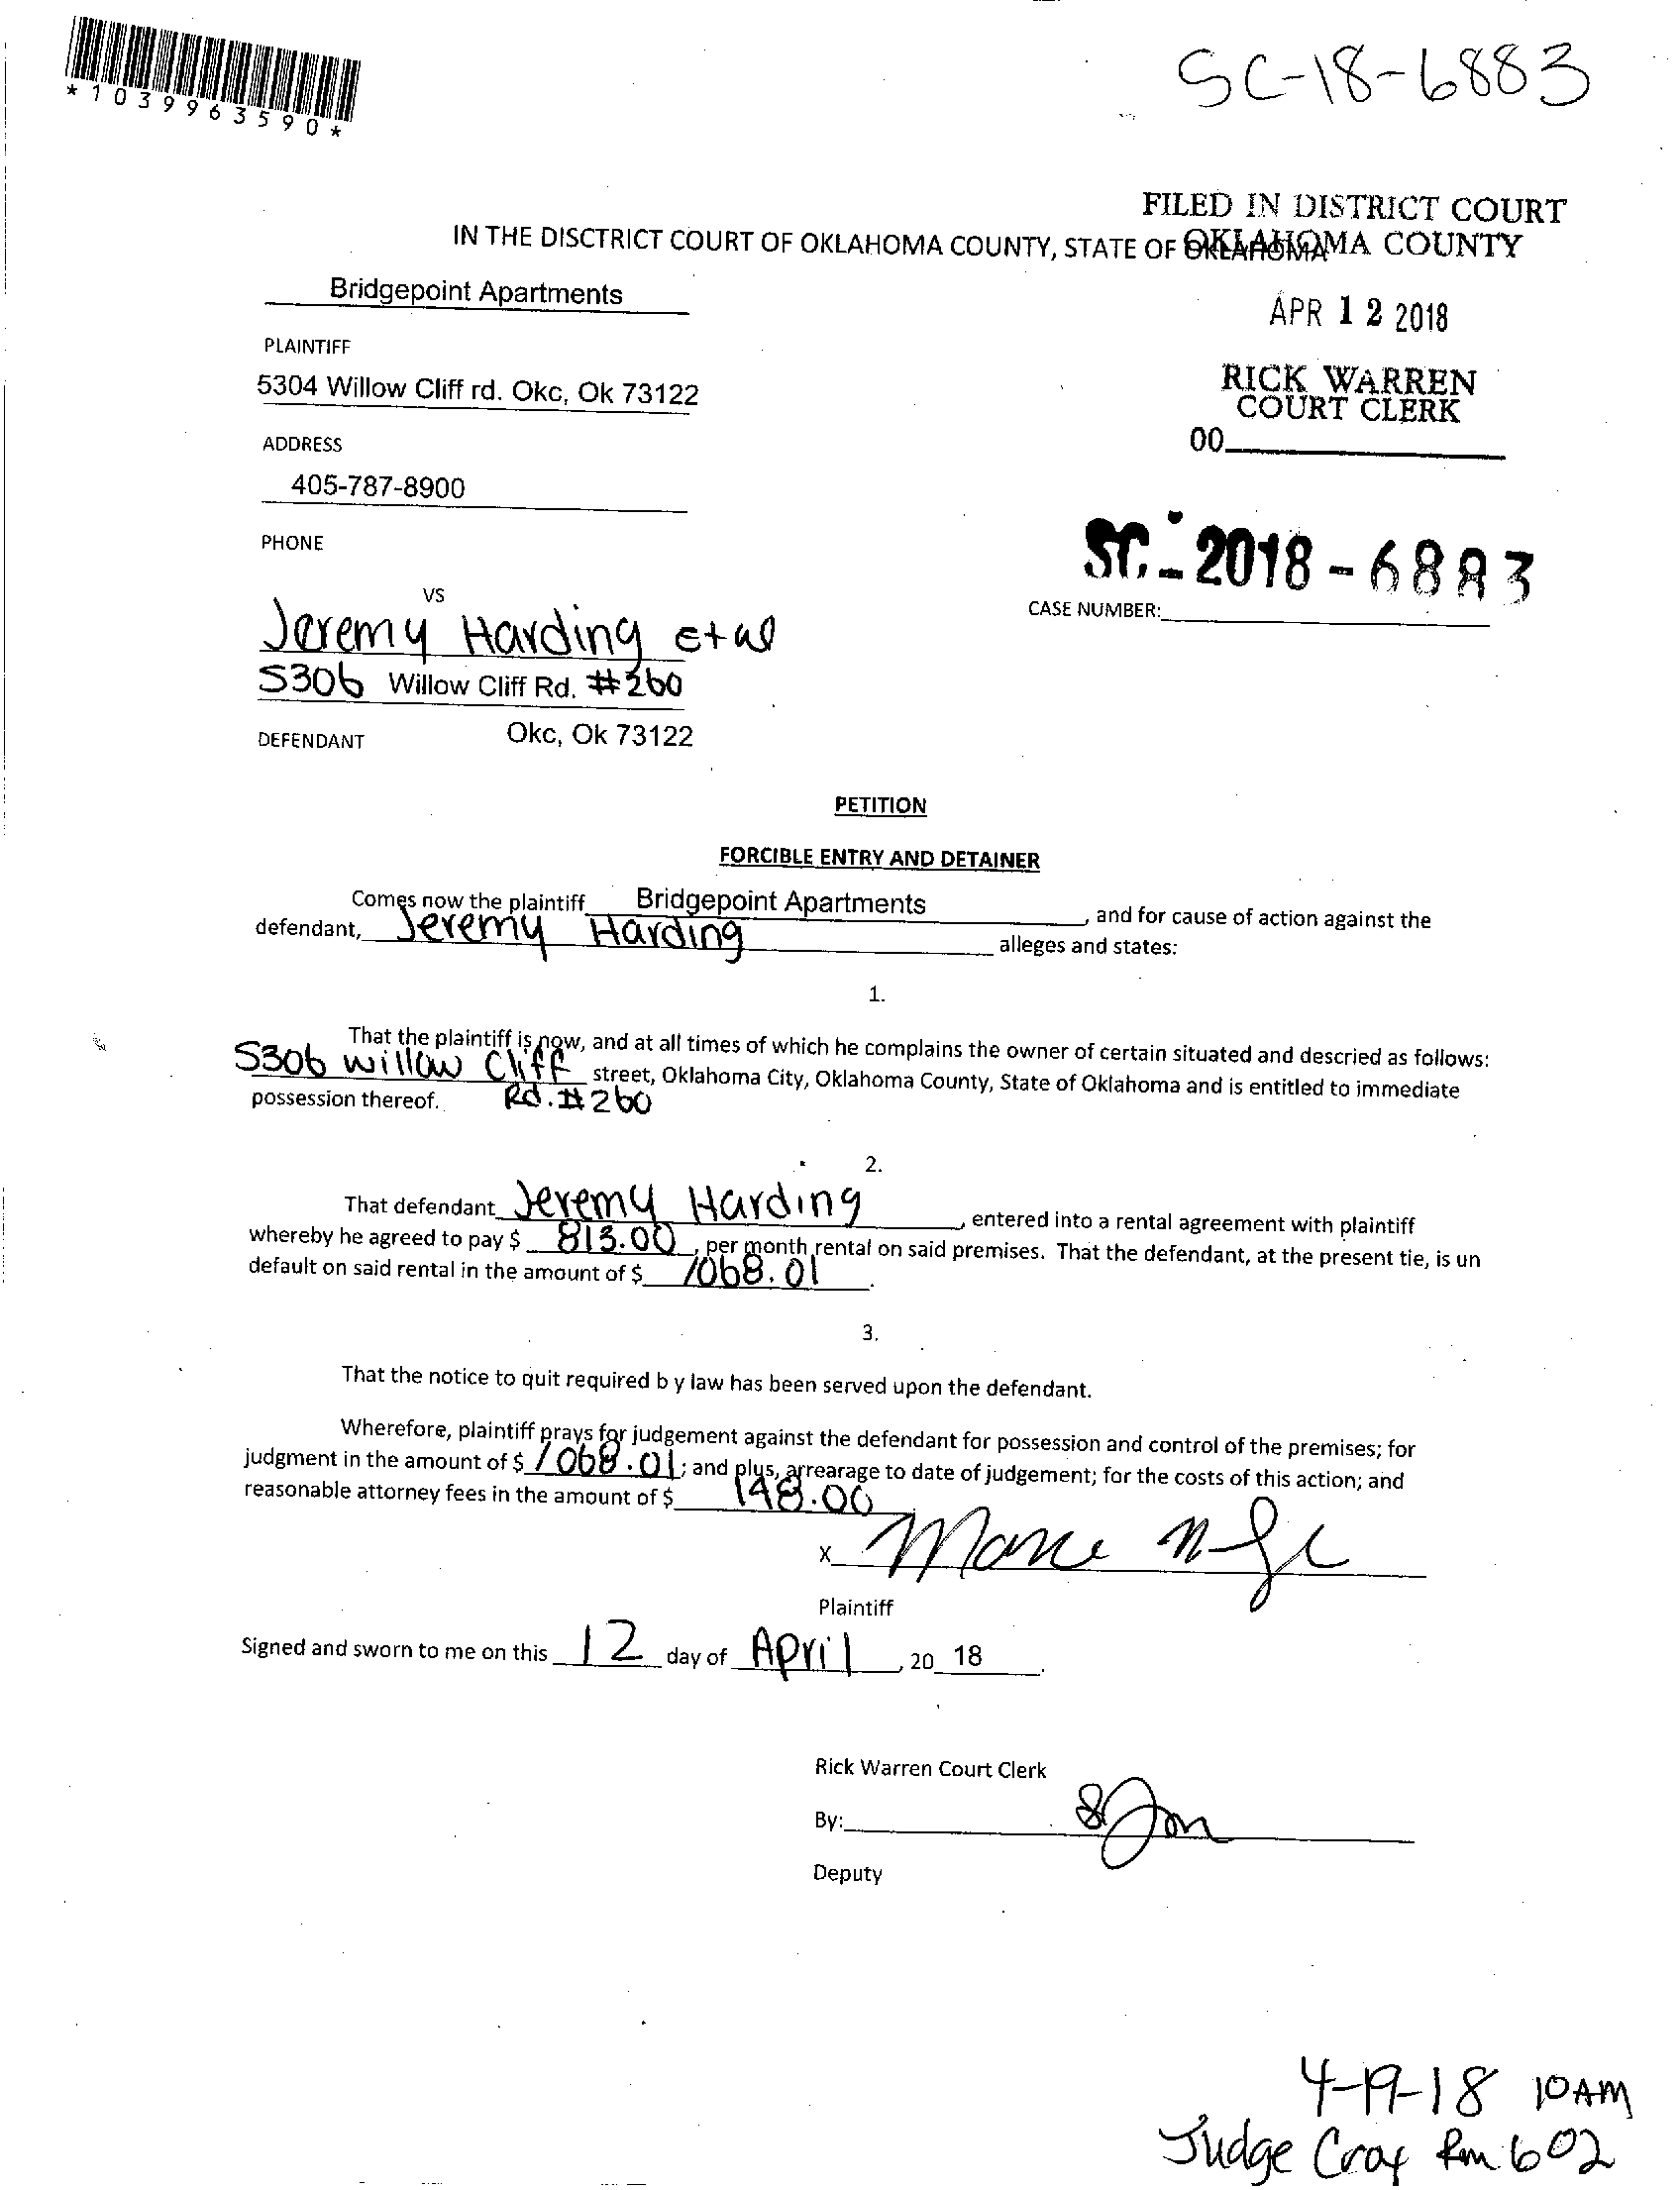 *1039963590*
SC-18-6883
FILED IN DISTRICT COURT
OKLAHOMA COUNTY
IN THE DISCTRICT COURT OF OKLAHOMA COUNTY, STATE OF OKLAHOMA
Bridgepoint Apartments
APR 12 2018
PLAINTIFF
RICK WARREN
COURT CLERK
5304 Willow Cliff rd. Okc, Ok 73122
ADDRESS
00
405-787-8900
PHONE
SC-2018-6883
CASE NUMBER:
VS
Jeremy Harding et al
5306 Willow Cliff Rd. #260
DEFENDANT Okc, Ok 73122
PETITION
FORCIBLE ENTRY AND DETAINER
Comes now the plaintiff Bridgepoint Apartments, and for cause of action against the
defendant, Jeremy Harding alleges and states:
1.
That the plaintiff is now, and at all times of which he complains the owner of certain situated and descried as follows:
5306 Willow Cliff street, Oklahoma City, Oklahoma County, State of Oklahoma and is entitled to immediate
possession thereof. Rd. #260
2.
That defendant Jeremy Harding, entered into a rental agreement with plaintiff
whereby he agreed to pay $ 813.00, per month rental on said premises. That the defendant, at the present tie, is un
default on said rental in the amount of $ 1068.01.
3.
That the notice to quit required b y law has been served upon the defendant.
Wherefore, plaintiff prays for judgement against the defendant for possession and control of the premises; for
judgment in the amount of $ 1068.01; and plus, arrearage to date of judgement; for the costs of this action; and
reasonable attorney fees in the amount of $ 148.00
X
Plaintiff
Signed and sworn to me on this 12 day of April, 20 18.
Rick Warren Court Clerk
By:
Deputy
4-19-18 10AM
Judge Rm 602